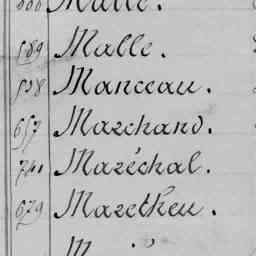 589 Malle.
528 Manceau.
657 Marchand.
741 Maréchal.
679 Maretheu.